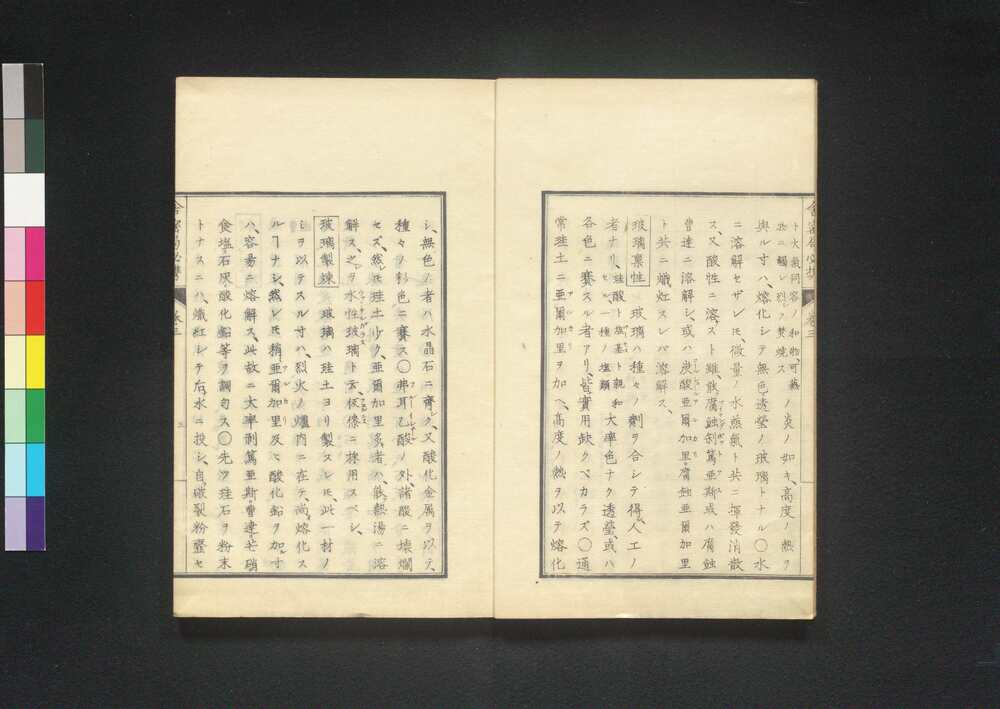 ト水氣同容ノ和物、可燃
此ニ觸レ烈ク焚燒ス
ノ炎ノ如キ、高度ノ熱ヲ
與ル寸ハ、熔化シテ無色透瑩ノ玻璃トナル〇水
ニ溶解セザレ𪜈、微量ノ水蒸氣ト共ニ揮發消散
ス、又酸性ニ溶ズト雖、能腐蝕剝篤亜斯或ハ腐蝕
曹達ニ溶解シ、或ハ炭酸亜爾加里腐蝕亜爾加里
ト共ニ熾灼スレバ溶解ス、
玻璃稟性 玻璃ハ種々ノ劑ヲ合シテ得、人工ノ
者ナリ、硅酸ト塩基ト親和
セル一種ノ塩類
大率色ナク透瑩、或ハ
各色ニ賽スル者アリ、皆實用缺クベカラズ〇通
常硅土ニ亜爾加里ヲ加ヘ、高度ノ熱ヲ以テ熔化
シ、無色ノ者ハ水晶石ニ齊ク、又酸化金属ヲ以テ、
種々ノ彩色ニ賽ス〇弗耳乙酸ノ外、諸酸ニ壊爛
セズ、然レ𪜈硅土少ク、亜爾加里多キ者ハ、能熱湯ニ溶
解ス、之ヲ水性玻璃ト云、
玻璃製煉 玻璃ハ硅土ヨリ製スレ𪜈、此一材ノ
ミヲ以テスル寸ハ、烈火ノ爐内ニ在テ、尚熔化ス
ルヿナシ、然レ𪜈稍亜爾加里及ヒ酸化鉛ヲ加フ寸
ハ、容易ニ熔解ス、此故ニ大率剝篤亜斯、曹達、芒硝
食塩、石灰、酸化鉛等ヲ調匀ス〇先ヅ硅石ヲ粉末
トナスニハ、熾灼シテ后、水ニ投シ、自碳裂粉虀セ
巻三
巻三
三